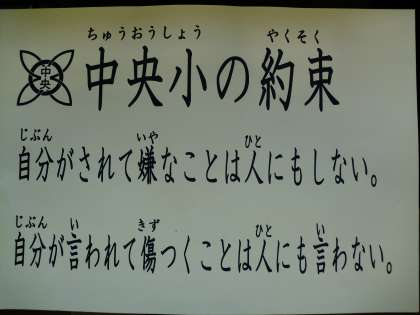 ちゅうおうしょう やくそく
中央
中央小の約束
じぶん いや ひと
自分がされて嫌なことは人にもしない。
じぶん い きず ひと い
自分が言われて傷つくことは人にも言わない。